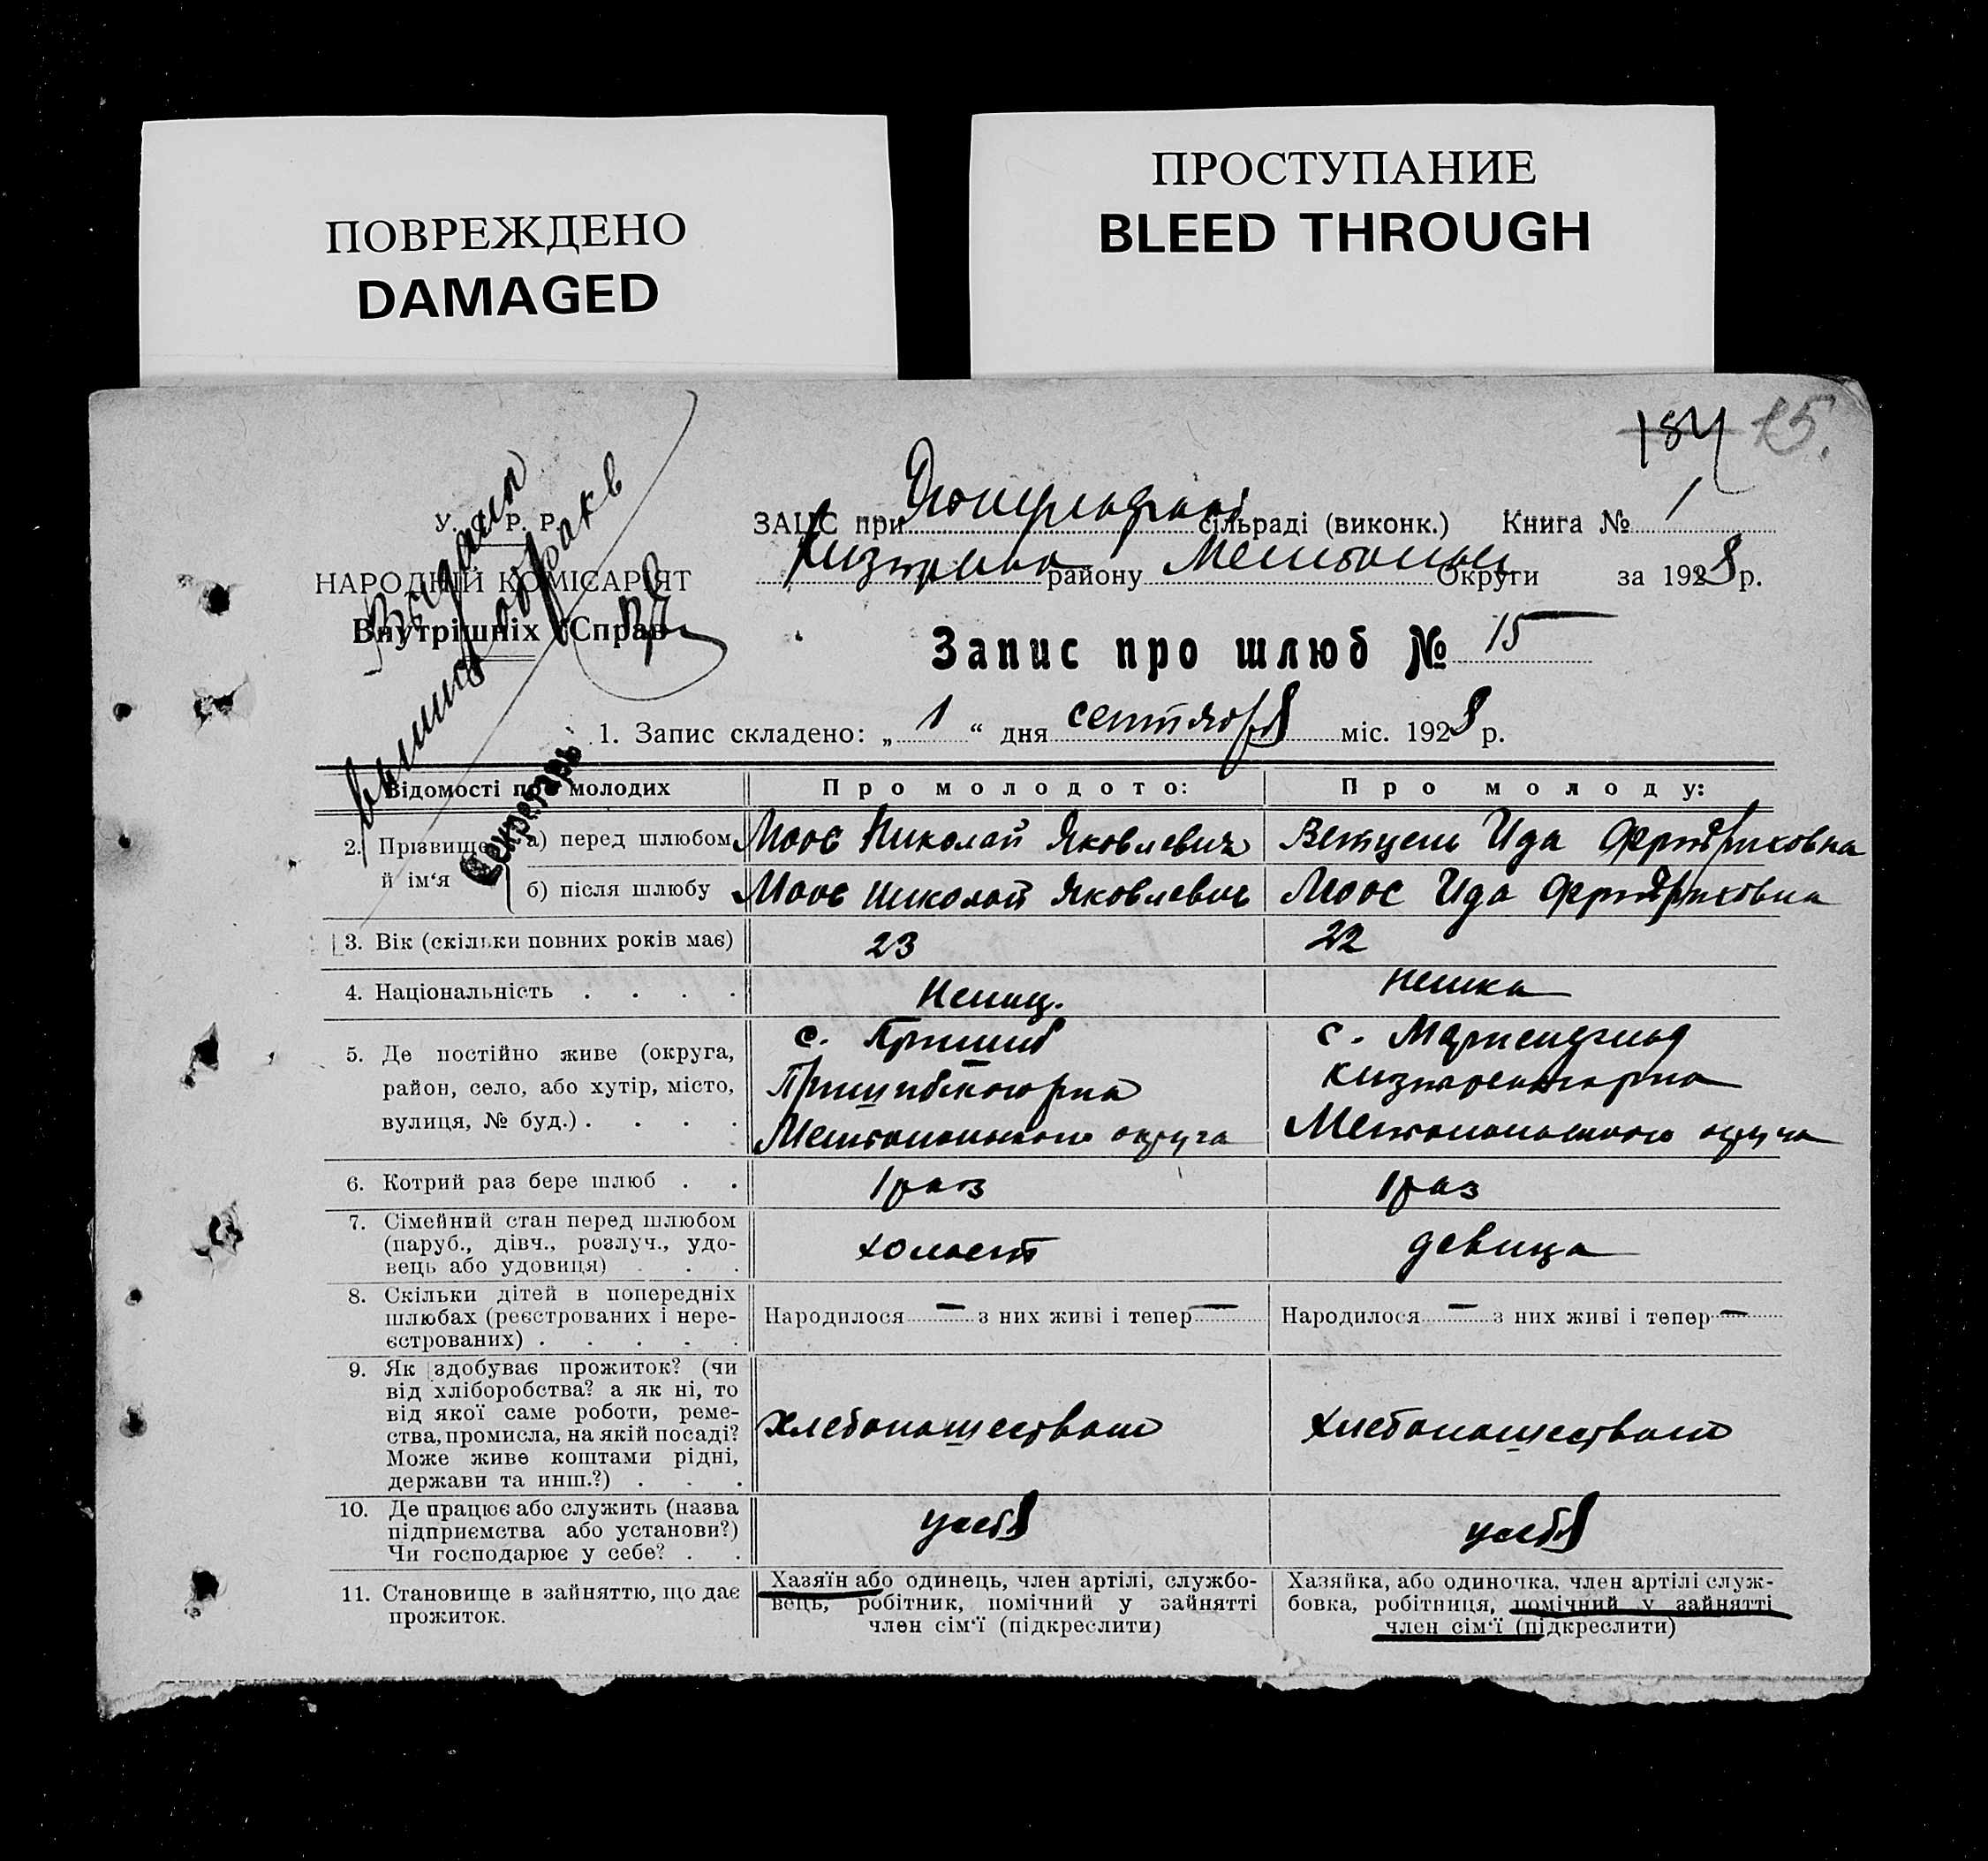 ПОВРЕЖДЕНО
DAMAGED
ПРОСТУПАНИЕ
BLEED THROUGH
184 15.
У. С. Р. Р.
НАРОДНІЙ КОМІСАРІЯТ
Внутрішніх Справ
Секретарь
ЗАЦС при сільраді (виконк.) Книга № 1
району Округи за 1928 р.
Запис про шлюб № 15
1. Запис складено: „ 1 “ дня сентября міс. 1928 р.
Відомості про молодих
Про молодого:
Про молоду:
2. Прізвище й ім‘я
а) перед шлюбом
Моос Николай Яковлевич
Ветцель Ида Фридриховна
б) після шлюбу
Моос Николай Яковлевич
Моос Ида Фридриховна
3. Вік (скільки повних років має)
23
22
4. Національність . . . .
Немец.
Немка
5. Де постійно живе (округа,
район, село, або хутір, місто,
вулиця, № буд.) . . . .
с. Пришиб
Пришибского р-на
Мелитопольского округа
с. Мариенфельд
р-на
Мелитопольского округа
6. Котрий раз бере шлюб . .
1 раз
1 раз
7. Сімейний стан перед шлюбом
(паруб., дівч., розлуч., удо-
вець або удовиця) . . .
холост
девица
8. Скільки дітей в попередніх
шлюбах (реєстрованих і нере-
єстрованих) . . . . .
Народилося — з них живі і тепер —
Народилося — з них живі і тепер —
9. Як здобуває прожиток? (чи
від хліборобства? а як ні, то
від якої саме роботи, реме-
ства, промисла, на якій посаді?
Може живе коштами рідні,
держави та инш.?) . . .
Хлебопашеством
Хлебопашеством
10. Де працює або служить (назва
підприємства або установи?)
Чи господарює у себе? . .
у себя
у себя
11. Становище в зайняттю, що дає
прожиток.
Хазяїн або одинець, член артілі, службо-
вець, робітник, помічний у зайнятті
член сім‘ї (підкреслити)
Хазяйка, або одиночка, член артілі служ-
бовка, робітниця, помічний у зайнятті
член сім‘ї (підкреслити)